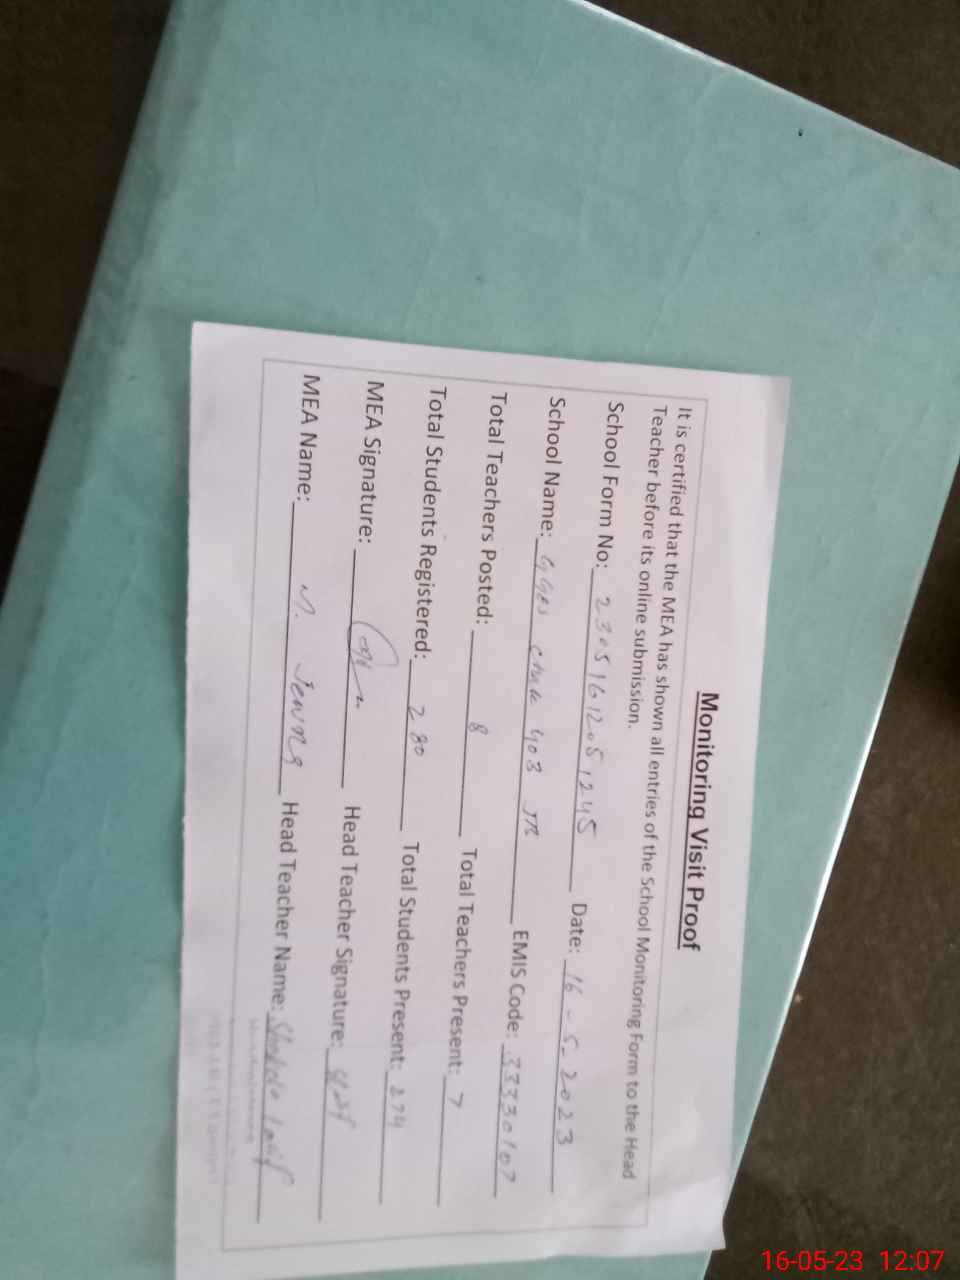 Monitoring Visit Proof
It is certified that the MEA has shown all entries of the School Monitoring Form to the Head
Teacher before its online submission.
School Form No: 23051612051245 Date: 16-5-2023
School Name: 403 JB EMIS Code: 33330107
Total Teachers Posted: 8 Total Teachers Present: 7
Total Students Registered: 280 Total Students Present: 274
MEA Signature: Head Teacher Signature:
MEA Name: Head Teacher Name:
16-05-23 12:07